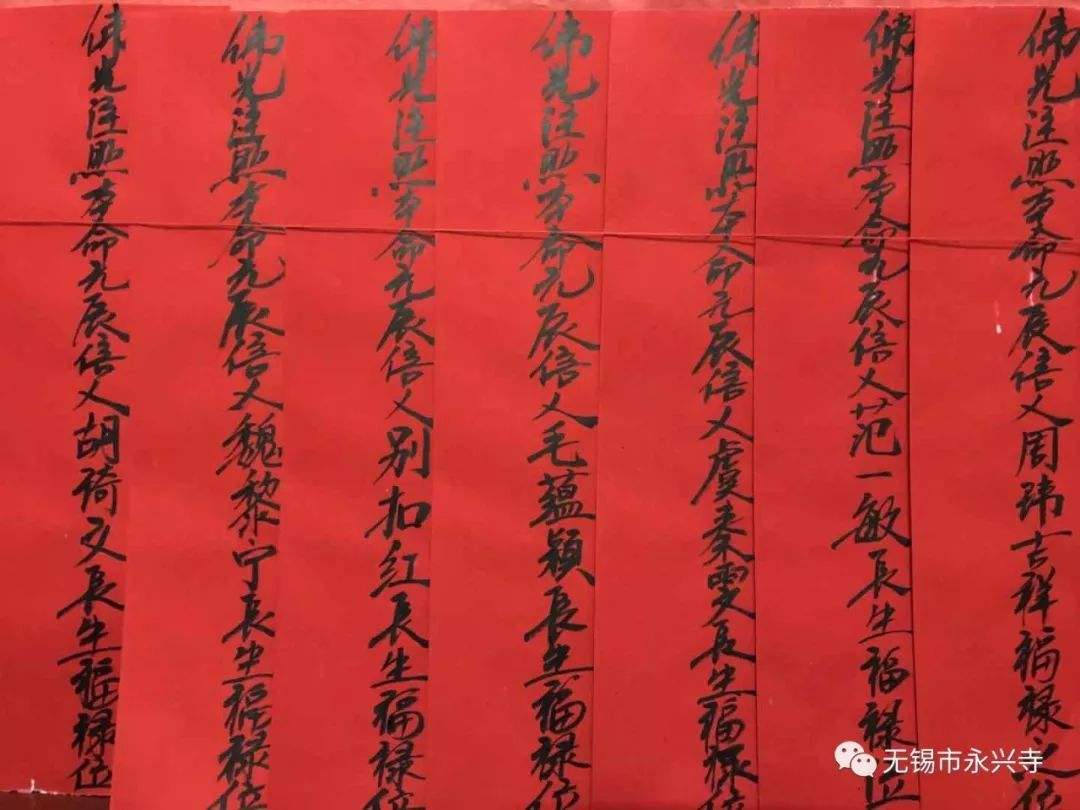 佛光注照本命元辰信人周玮吉祥福禄之位
佛光注照本命元辰信人范一敏長生福禄位
佛光注照本命元辰信人虞秦雯長生福禄位
佛光注照本命元辰信人毛蕴颖長生福禄位
佛光注照本命元辰信人别扣红長生福禄位
佛光注照本命元辰信人魏黎宁長生福禄位
佛光注照本命元辰信人胡琦文長生福禄位
无锡市永兴寺